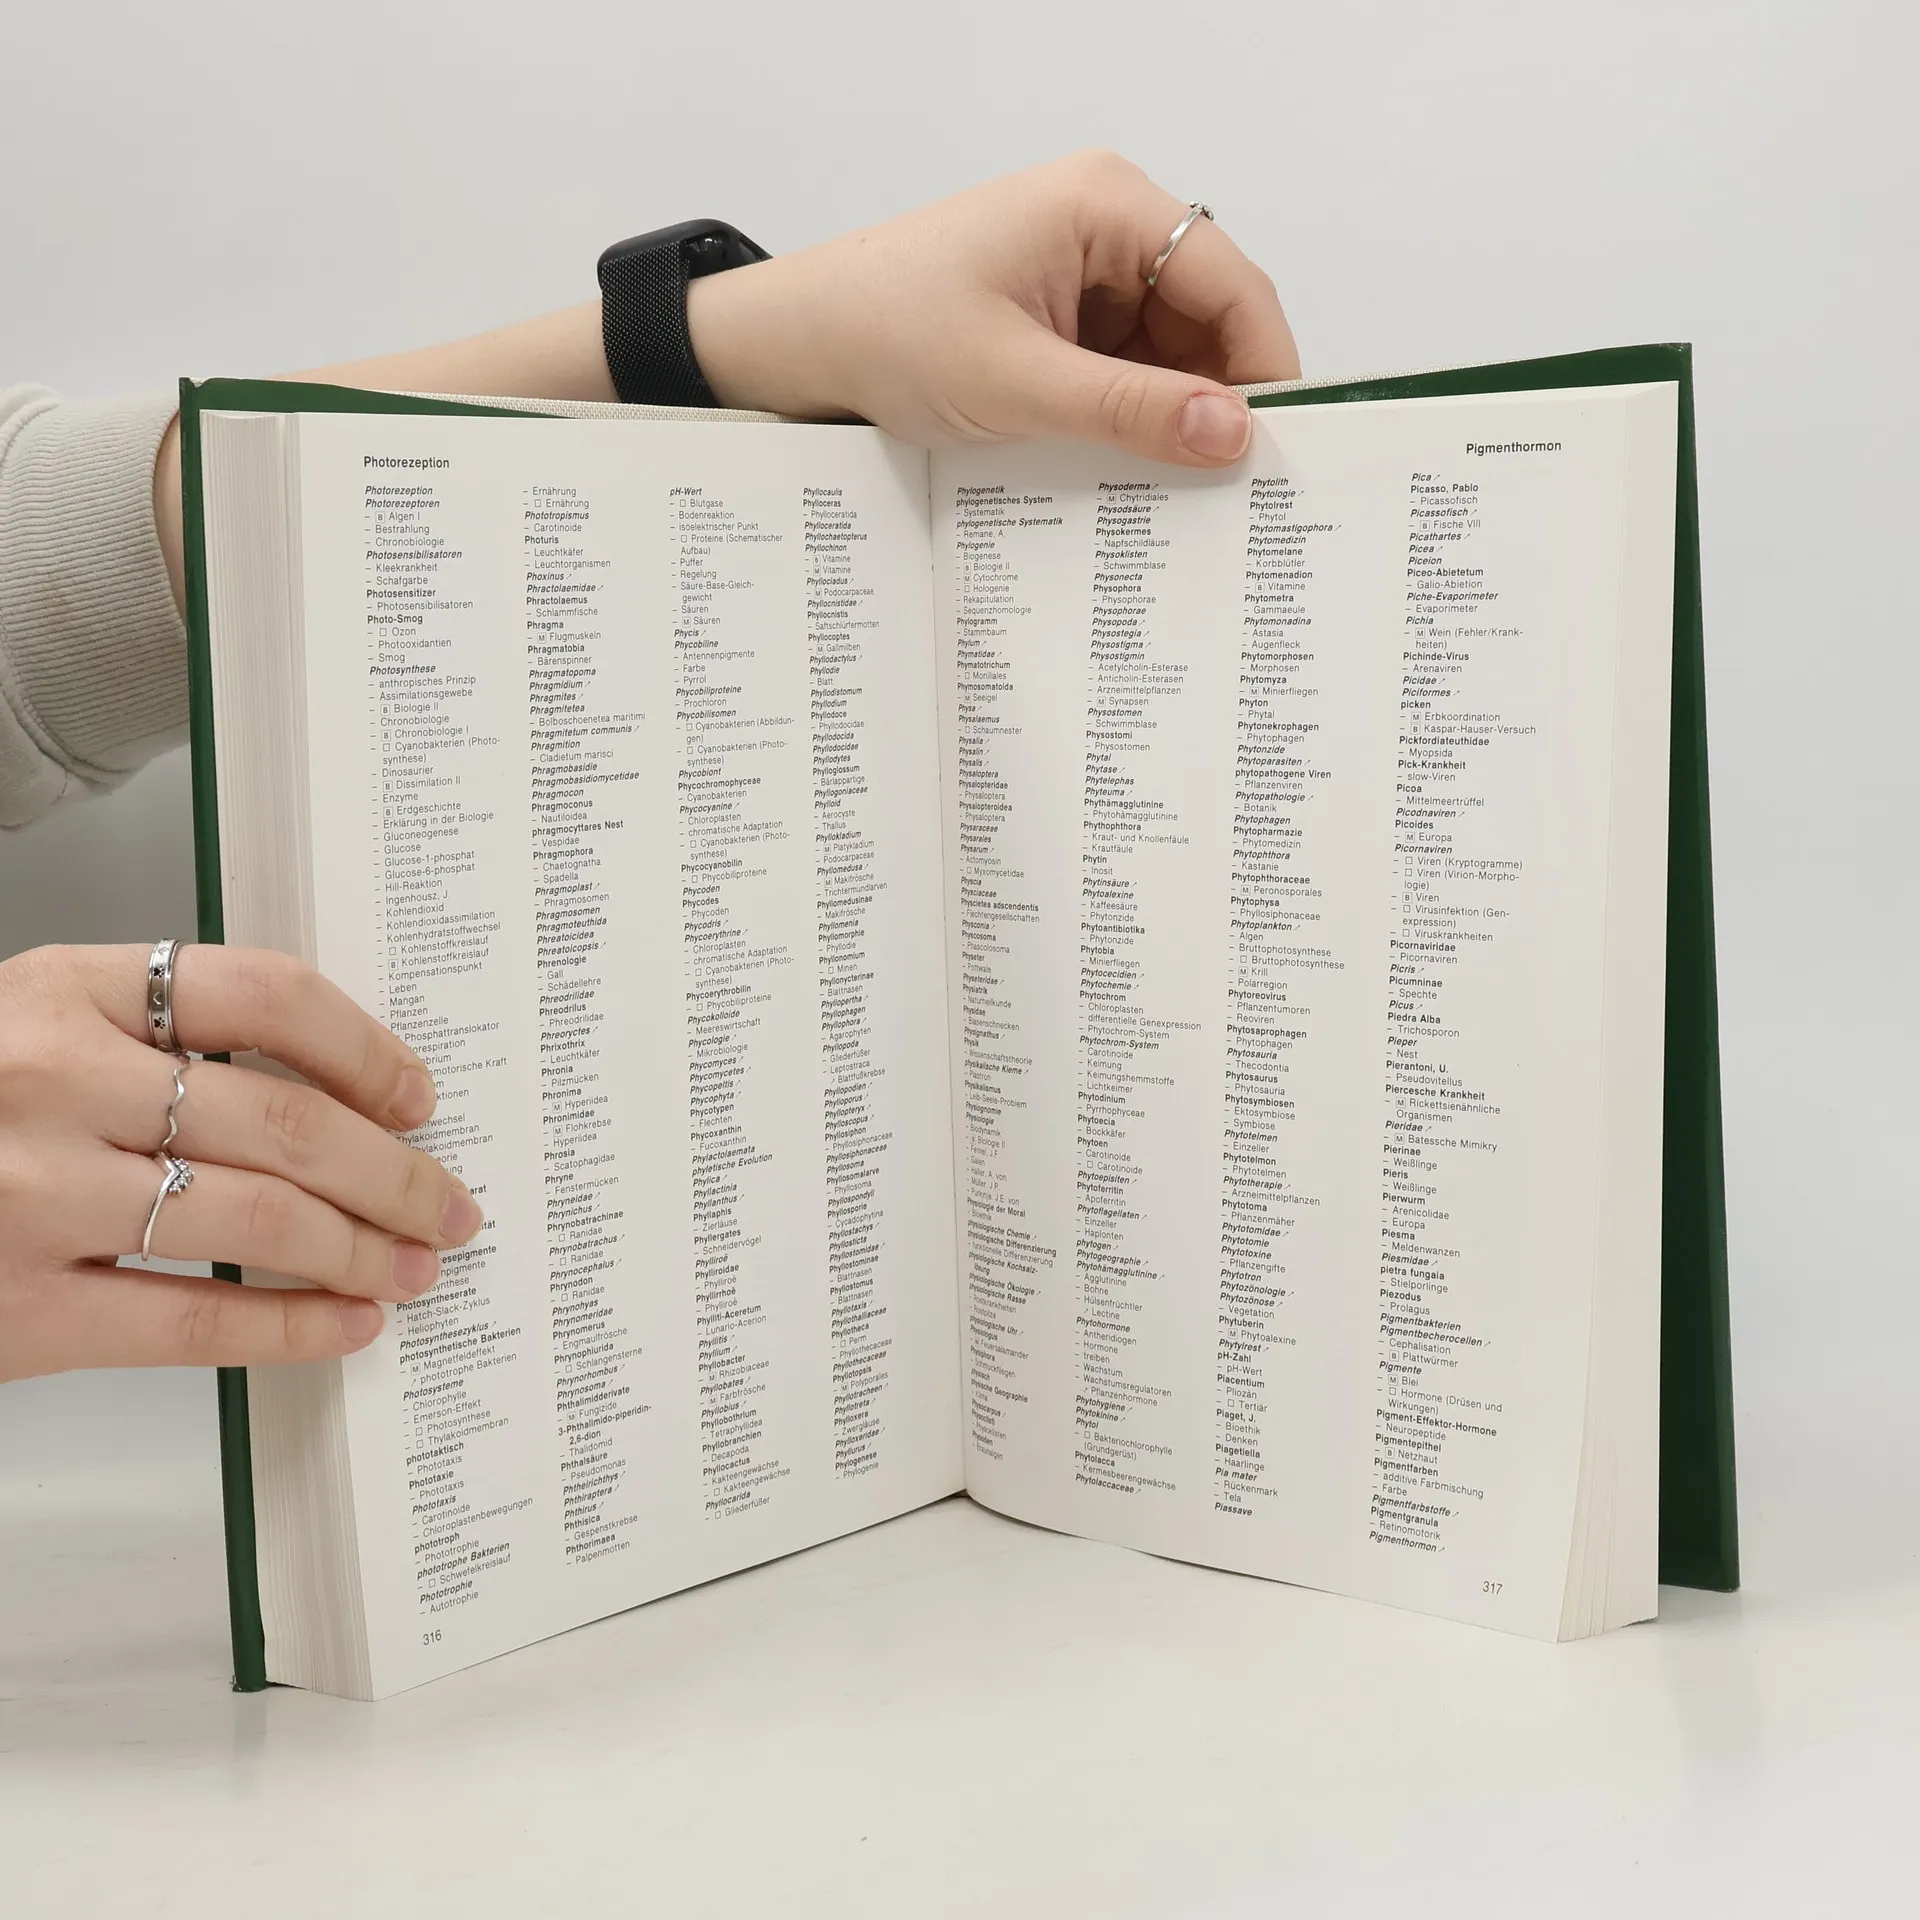 Photorezeption
Photorezeption
Photorezeptoren
– B Algen I
– Bestrahlung
– Chronobiologie
Photosensibilisatoren
– Kleekrankheit
– Schafgarbe
Photosensitizer
– Photosensibilisatoren
Photo-Smog
– □ Ozon
– Photooxidantien
– Smog
Photosynthese
– anthropisches Prinzip
– Assimilationsgewebe
– B Biologie II
– Chronobiologie
– B Chronobiologie I
– □ Cyanobakterien (Photo-
synthese)
– Dinosaurier
– B Dissimilation II
– Enzyme
– B Erdgeschichte
– Erklärung in der Biologie
– Gluconeogenese
– Glucose
– Glucose-1-phosphat
– Glucose-6-phosphat
– Hill-Reaktion
– Ingenhousz, J.
– Kohlendioxid
– Kohlendioxidassimilation
– Kohlenhydratstoffwechsel
– □ Kohlenstoffkreislauf
– B Kohlenstoffkreislauf
– Kompensationspunkt
– Leben
– Mangan
– Pflanzen
Pflanzenzelle
Phosphattranslokator
Photosyntheserate
– Hatch-Slack-Zyklus
– Heliophyten
Photosynthesezyklus ↗
photosynthetische Bakterien
– M Magnetfeldeffekt
↗ phototrophe Bakterien
Photosysteme
– Chlorophylle
– Emerson-Effekt
– □ Photosynthese
– □ Thylakoidmembran
phototaktisch
– Phototaxis
Phototaxie
– Phototaxis
Phototaxis
– Carotinoide
– Chloroplastenbewegungen
phototroph
– Phototrophie
phototrophe Bakterien
– □ Schwefelkreislauf
Phototrophie
– Autotrophie
– Ernährung
– □ Ernährung
Phototropismus
– Carotinoide
Photuris
– Leuchtkäfer
– Leuchtorganismen
Phoxinus ↗
Phractolaemidae ↗
Phractolaemus
– Schlammfische
Phragma
– M Flugmuskeln
Phragmatobia
– Bärenspinner
Phragmatopoma
Phragmidium ↗
Phragmites ↗
Phragmitetea
– Bolboschoenetea maritimi
Phragmitetum communis ↗
Phragmition
– Cladietum marisci
Phragmobasidie
Phragmobasidiomycetidae
Phragmocon
Phragmoconus
– Nautiloidea
phragmocyttares Nest
– Vespidae
Phragmophora
– Chaetognatha
– Spadella
Phragmoplast ↗
– Phragmosomen
Phragmosomen
Phragmoteuthida
Phreatoicidea
Phreatoicopsis ↗
Phrenologie
– Gall
– Schädellehre
Phreodrilidae
Phreodrilus
– Phreodrilidae
Phreoryctes ↗
Phrixothrix
– Leuchtkäfer
Phronia
– Pilzmücken
Phronima
– M Hyperiidea
Phronimidae
– M Flohkrebse
– Hyperiidea
Phrosia
– Scatophagidae
Phryne
– Fenstermücken
Phryneidae ↗
Phrynichus ↗
Phrynobatrachinae
– □ Ranidae
Phrynobatrachus ↗
– □ Ranidae
Phrynocephalus ↗
Phrynodon
– □ Ranidae
Phrynohyas
Phrynomeridae
Phrynomerus
– Engmaulfrösche
Phrynophiurida
– □ Schlangensterne
Phrynorhombus ↗
Phrynosoma ↗
Phthalimidderivate
– M Fungizide
3-Phthalimido-piperidin-
2,6-dion
– Thalidomid
Phthalsäure
– Pseudomonas
Phtheirichthys ↗
Phthiraptera ↗
Phthirus ↗
Phthisica
– Gespenstkrebse
Phthorimaea
– Palpenmotten
pH-Wert
– □ Blutgase
– Bodenreaktion
– isoelektrischer Punkt
– □ Proteine (Schematischer
Aufbau)
– Puffer
– Regelung
– Säure-Base-Gleich-
gewicht
– Säuren
– M Säuren
Phycis ↗
Phycobiline
– Antennenpigmente
– Farbe
– Pyrrol
Phycobiliproteine
– Prochloron
Phycobilisomen
– □ Cyanobakterien (Abbildun-
gen)
– □ Cyanobakterien (Photo-
synthese)
Phycobiont
Phycochromophyceae
– Cyanobakterien
Phycocyanine ↗
– Chloroplasten
– chromatische Adaptation
– □ Cyanobakterien (Photo-
synthese)
Phycocyanobilin
– □ Phycobiliproteine
Phycoden
Phycodes
– Phycoden
Phycodris ↗
Phycoerythrine ↗
– Chloroplasten
– chromatische Adaptation
– □ Cyanobakterien (Photo-
synthese)
Phycoerythrobilin
– □ Phycobiliproteine
Phycokolloide
– Meereswirtschaft
Phycologie ↗
– Mikrobiologie
Phycomyces ↗
Phycomycetes ↗
Phycopeltis ↗
Phycophyta ↗
Phycotypen
– Flechten
Phycoxanthin
– Fucoxanthin
Phylactolaemata
phyletische Evolution
Phylica ↗
Phyllactinia
Phyllanthus ↗
Phyllaphis
– Zierläuse
Phyllergates
– Schneidervögel
Phylliroë
Phylliroidae
– Phylliroë
Phyllirrhoë
– Phylliroë
Phylliti-Aceretum
– Lunario-Acerion
Phyllitis ↗
Phyllium ↗
Phyllobacter
– M Rhizobiaceae
Phyllobates ↗
– M Farbfrösche
Phyllobius ↗
Phyllobothrium
– Tetraphyllidea
Phyllobranchien
– Decapoda
Phyllocactus
– Kakteengewächse
– □ Kakteengewächse
Phyllocarida
– □ Gliederfüßer
Phyllocaulis
Phylloceras
– Phylloceratida
Phylloceratida
Phyllochaetopterus
Phyllochinon
– B Vitamine
– M Vitamine
Phyllocladus ↗
– M Podocarpaceae
Phyllocnistidae ↗
Phyllocnistis
– Saftschlürfermotten
Phyllocoptes
– M Gallmilben
Phyllodactylus ↗
Phyllodie
– Blatt
Phyllodistomum
Phyllodium
Phyllodoce
– Phyllodocidae
Phyllodocida
Phyllodocidae
Phyllodytes
Phylloglossum
– Bärlappartige
Phyllogoniaceae
Phylloid
– Aerocyste
– Thallus
Phyllokladium
– M Platykladium
– Podocarpaceae
Phyllomedusa ↗
– M Makifrösche
– Trichtermundlarven
Phyllomedusinae
– Makifrösche
Phyllomenia
Phyllomorphie
– Phyllodie
Phyllonomium
– □ Minen
Phyllonycterinae
– Blattnasen
Phyllopertha ↗
Phyllophagen
Phyllophora ↗
– Agarophyten
Phyllopoda
– Gliederfüßer
– Leptostraca
↗ Blattfußkrebse
Phyllopodien ↗
Phylloporus ↗
Phyllopteryx ↗
Phylloscopus ↗
Phyllosiphon
– Phyllosiphonaceae
Phyllosiphonaceae
Phyllosoma
Phyllosomalarve
– Phyllosoma
Phyllospondyli
Phyllosporie
– Cycadophytina
Phyllostachys ↗
Phyllosticta
Phyllostomidae ↗
Phyllostominae
– Blattnasen
Phyllostomus
– Blattnasen
Phyllotaxis ↗
Phyllothallaceae
Phyllotheca
– □ Perm
– Phyllothecaceae
Phyllothecaceae
Phyllotopsis
– M Polyporales
Phyllotracheen ↗
Phyllotreta ↗
Phylloxera
– Zwergläuse
Phylloxeridae ↗
Phyllurus ↗
Phylogenese
– Phylogenie
316
Pigmenthormon
Phylogenetik
phylogenetisches System
– Systematik
phylogenetische Systematik
– Remane, A.
Phylogenie
– Biogenese
– B Biologie II
– M Cytochrome
– □ Hologenie
– Rekapitulation
– Sequenzhomologie
Phylogramm
– Stammbaum
Phylum ↗
Phymatidae ↗
Phymatotrichum
– □ Moniliales
Phymosomatoida
– M Seeigel
Physa ↗
Physalaemus
– □ Schaumnester
Physalia ↗
Physalin ↗
Physalis ↗
Physaloptera
Physalopteridae
– Physaloptera
Physalopteroidea
– Physaloptera
Physaraceae
Physarales
Physarum ↗
– Actomyosin
– □ Myxomycetidae
Physcia
Physciaceae
Physcietea adscendentis
– Flechtengesellschaften
Physconia ↗
Physcosoma
– Phascolosoma
Physeter
– Pottwale
Physeteridae ↗
Physiatrik
– Naturheilkunde
Physidae
– Blasenschnecken
Physignathus ↗
Physik
– Wissenschaftstheorie
physikalische Kieme ↗
– Plastron
Physikalismus
– Leib-Seele-Problem
Physiognomie
Physiologie
– Biodynamik
– B Biologie II
– Fernel, J.F.
– Galen
– Haller, A. von
– Müller, J.P.
– Purkinje, J.E. von
Physiologie der Moral
– Bioethik
physiologische Chemie ↗
physiologische Differenzierung
– funktionelle Differenzierung
physiologische Kochsalz-
lösung
physiologische Ökologie ↗
physiologische Rasse
– Rostkrankheiten
– Rostpilze
physiologische Uhr ↗
Physiologus
– M Feuersalamander
Physiphora
– Schmuckfliegen
physisch
physische Geographie
– Klima
Physocarpus ↗
Physoclisti
– Physoklisten
Physoden
– Braunalgen
Physoderma ↗
– M Chytridiales
Physodsäure ↗
Physogastrie
Physokermes
– Napfschildläuse
Physoklisten
– Schwimmblase
Physonecta
Physophora
– Physophorae
Physophorae
Physopoda ↗
Physostegia ↗
Physostigma ↗
Physostigmin
– Acetylcholin-Esterase
– Anticholin-Esterasen
– Arzneimittelpflanzen
– M Synapsen
Physostomen
– Schwimmblase
Physostomi
– Physostomen
Phytal
Phytase ↗
Phytelephas
Phyteuma ↗
Phythämagglutinine
– Phytohämagglutinine
Phythophthora
– Kraut- und Knollenfäule
– Krautfäule
Phytin
– Inosit
Phytinsäure ↗
Phytoalexine
– Kaffeesäure
– Phytonzide
Phytoantibiotika
– Phytonzide
Phytobia
– Minierfliegen
Phytocecidien ↗
Phytochemie ↗
Phytochrom
– Chloroplasten
– differentielle Genexpression
– Phytochrom-System
Phytochrom-System
– Carotinoide
– Keimung
– Keimungshemmstoffe
– Lichtkeimer
Phytodinium
– Pyrrhophyceae
Phytoecia
– Bockkäfer
Phytoen
– Carotinoide
– □ Carotinoide
Phytoepisiten ↗
Phytoferritin
– Apoferritin
Phytoflagellaten ↗
– Einzeller
– Haplonten
phytogen ↗
Phytogeographie ↗
Phytohämagglutinine ↗
– Agglutinine
– Bohne
– Hülsenfrüchtler
↗ Lectine
Phytohormone
– Antheridiogen
– Hormone
– treiben
– Wachstum
– Wachstumsregulatoren
↗ Pflanzenhormone
Phytohygiene ↗
Phytokinine ↗
Phytol
– □ Bakteriochlorophylle
(Grundgerüst)
Phytolacca
– Kermesbeerengewächse
Phytolaccaceae ↗
Phytolith
Phytologie ↗
Phytolrest
– Phytol
Phytomastigophora ↗
Phytomedizin
Phytomelane
– Korbblütler
Phytomenadion
– B Vitamine
Phytometra
– Gammaeule
Phytomonadina
– Astasia
– Augenfleck
Phytomorphosen
– Morphosen
Phytomyza
– M Minierfliegen
Phyton
– Phytal
Phytonekrophagen
– Phytophagen
Phytonzide
Phytoparasiten ↗
phytopathogene Viren
– Pflanzenviren
Phytopathologie ↗
– Botanik
Phytophagen
Phytopharmazie
– Phytomedizin
Phytophthora
– Kastanie
Phytophthoraceae
– M Peronosporales
Phytophysa
– Phyllosiphonaceae
Phytoplankton ↗
– Algen
– Bruttophotosynthese
– □ Bruttophotosynthese
– M Krill
– Polarregion
Phytoreovirus
– Pflanzentumoren
– Reoviren
Phytosaprophagen
– Phytophagen
Phytosauria
– Thecodontia
Phytosaurus
– Phytosauria
Phytosymbiosen
– Ektosymbiose
– Symbiose
Phytotelmen
– Einzeller
Phytotelmon
– Phytotelmen
Phytotherapie ↗
– Arzneimittelpflanzen
Phytotoma
– Pflanzenmäher
Phytotomidae ↗
Phytotomie
Phytotoxine
– Pflanzengifte
Phytotron
Phytozönologie ↗
Phytozönose ↗
– Vegetation
Phytuberin
– M Phytoalexine
Phytylrest ↗
pH-Zahl
– pH-Wert
Piacentium
– Pliozän
– □ Tertiär
Piaget, J.
– Bioethik
– Denken
Piagetiella
– Haarlinge
Pia mater
– Rückenmark
– Tela
Piassave
Pica ↗
Picasso, Pablo
– Picassofisch
Picassofisch ↗
– B Fische VIII
Picathartes ↗
Picea ↗
Piceion
Piceo-Abietetum
– Galio-Abietion
Piche-Evaporimeter
– Evaporimeter
Pichia
– M Wein (Fehler/Krank-
heiten)
Pichinde-Virus
– Arenaviren
Picidae ↗
Piciformes ↗
picken
– M Erbkoordination
– B Kaspar-Hauser-Versuch
Pickfordiateuthidae
– Myopsida
Pick-Krankheit
– slow-Viren
Picoa
– Mittelmeertrüffel
Picodnaviren ↗
Picoides
– M Europa
Picornaviren
– □ Viren (Kryptogramme)
– □ Viren (Virion-Morpho-
logie)
– B Viren
– □ Virusinfektion (Gen-
expression)
– □ Viruskrankheiten
Picornaviridae
– Picornaviren
Picris ↗
Picumninae
– Spechte
Picus ↗
Piedra Alba
– Trichosporon
Pieper
– Nest
Pierantoni, U.
– Pseudovitellus
Piercesche Krankheit
– M Rickettsienähnliche
Organismen
Pieridae ↗
– M Batessche Mimikry
Pierinae
– Weißlinge
Pieris
– Weißlinge
Pierwurm
– Arenicolidae
– Europa
Piesma
– Meldenwanzen
Piesmidae ↗
pietra fungaia
– Stielporlinge
Piezodus
– Prolagus
Pigmentbakterien
Pigmentbecherocellen ↗
– Cephalisation
– B Plattwürmer
Pigmente
– M Blei
– □ Hormone (Drüsen und
Wirkungen)
Pigment-Effektor-Hormone
– Neuropeptide
Pigmentepithel
– B Netzhaut
Pigmentfarben
– additive Farbmischung
– Farbe
Pigmentfarbstoffe ↗
Pigmentgranula
– Retinomotorik
Pigmenthormon ↗
317